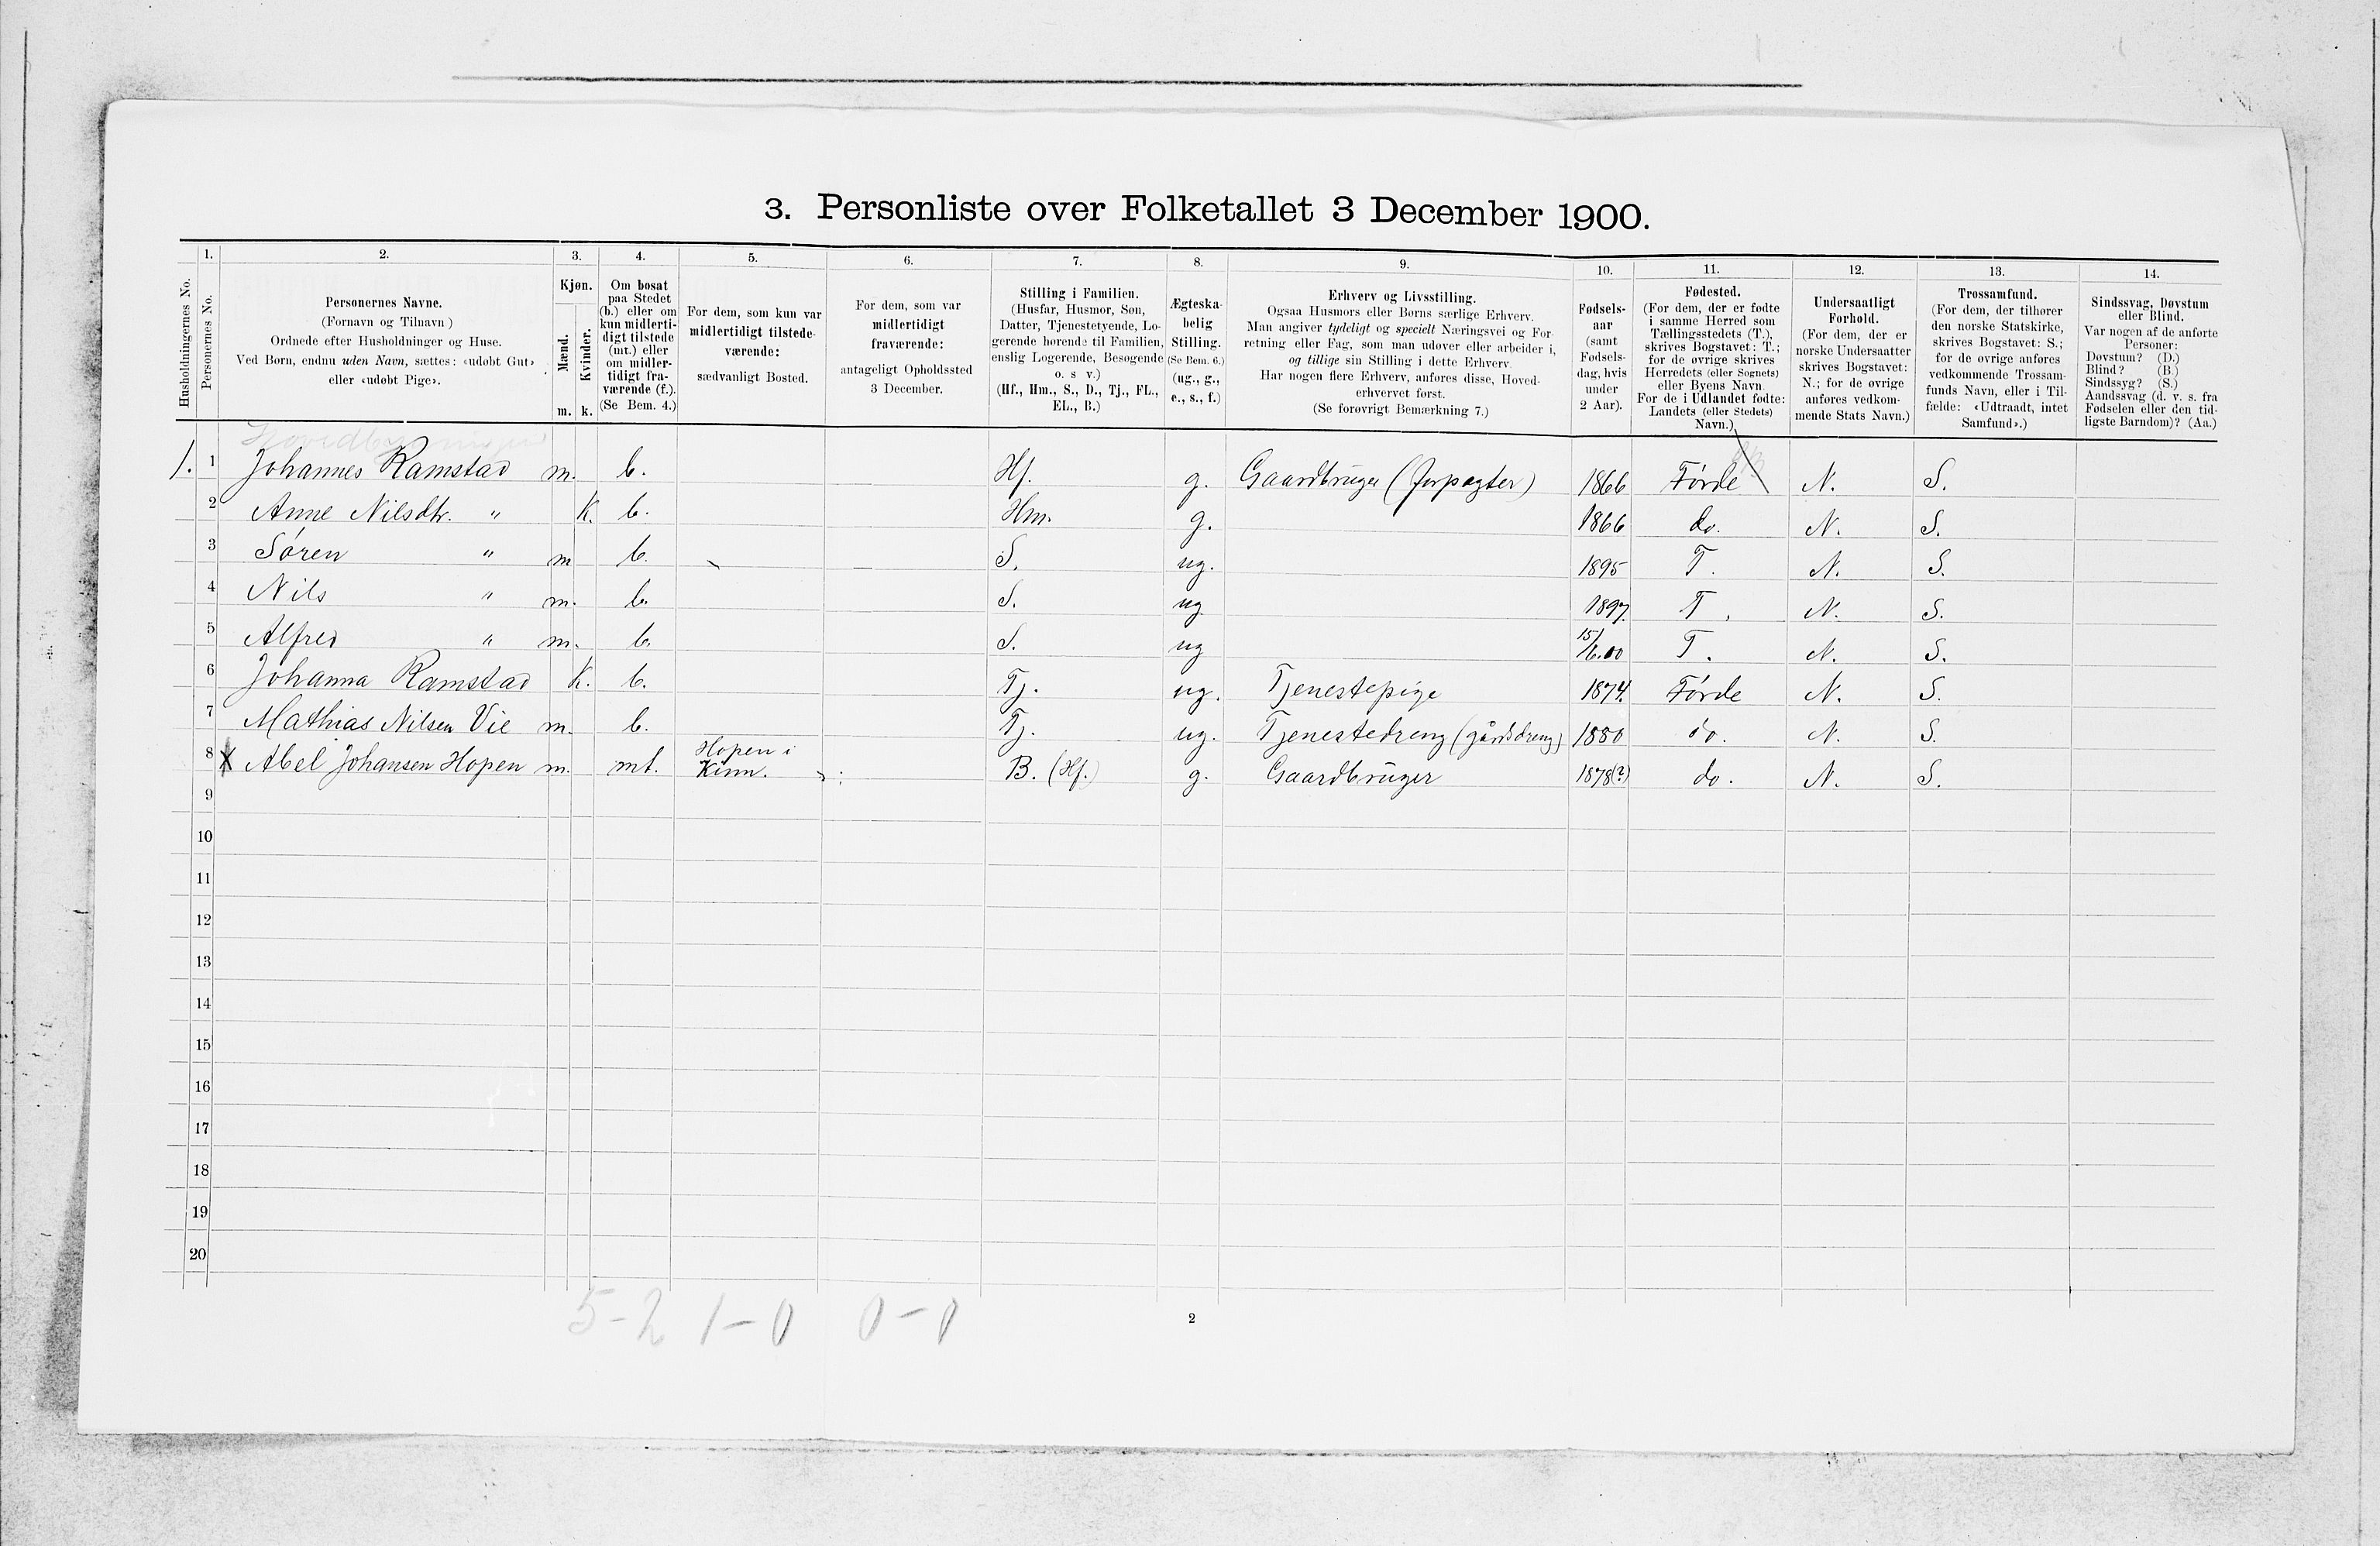 3. Personliste over Folketallet 3 December 1900.
1. 2. 3. 4. 5. 6. 7. 8. 9. 10. 11. 12. 13. 14.
Husholdningernes No.
Personernes No.
Personernes Navne.
(Fornavn og Tilnavn)
Ordnede efter Husholdninger og Huse.
Ved Børn, endnu uden Navn, sættes: «udøbt Gut»
eller «udøbt Pige».
Kjøn.
Mænd.
Kvinder.
m. k.
Om bosat
paa Stedet
(b.) eller om
kun midlerti-
digt tilstede
(mt.) eller
om midler-
tidigt fra-
værende (f.).
(Se Bem. 4.)
For dem, som kun var
midlertidigt tilstede-
værende:
sædvanligt Bosted.
For dem, som var
midlertidigt
fraværende:
antageligt Opholdssted
3 December.
Stilling i Familien.
(Husfar, Husmor, Søn,
Datter, Tjenestetyende, Lo-
gerende hørende til Familien,
enslig Logerende, Besøgende
o. s v.)
(Hf., Hm., S., D., Tj., FL.,
EL., B.)
Ægteska-
belig
Stilling.
(Se Bem. 6.)
(ug., g.,
e., s., f.)
Erhverv og Livsstilling.
Ogsaa Husmors eller Børns særlige Erhverv.
Man angiver tydeligt og specielt Næringsvei og For-
retning eller Fag, som man udøver eller arbeider i,
og tillige sin Stilling i dette Erhverv.
Har nogen flere Erhverv, anføres disse, Hoved-
erhvervet først.
(Se forøvrigt Bemærkning 7.)
Fødsels-
aar
(samt
Fødsels-
dag, hvis
under
2 Aar).
Fødested.
(For dem, der er fødte
i samme Herred som
Tællingsstedets (T.),
skrives Bogstavet: T.;
for de øvrige skrives
Herredets (eller Sognets)
eller Byens Navn.
For de i Udlandet fødte:
Landets (eller Stedets)
Navn.)
Undersaatligt
Forhold.
(For dem, der er
norske Undersaatter
skrives Bogstavet:
N.; for de øvrige
anføres vedkom-
mende Stats Navn.)
Trossamfund.
(For dem, der tilhører
den norske Statskirke,
skrives Bogstavet: S.;
for de øvrige anføres
vedkommende Trossam-
funds Navn, eller i Til-
fælde: «Udtraadt, intet
Samfund».)
Sindssvag, Døvstum
eller Blind.
Var nogen af de anførte
Personer:
Døvstum? (D.)
Blind? (B.)
Sindssyg? (S.)
Aandssvag (d. v. s. fra
Fødselen eller den tid-
ligste Barndom)? (Aa.)
Hovedbygningen
1. 1 Johannes Ramstad m. b. Hf. g. Gaardbruger (forpagter) 1866 Førde N. S.
2 Anne Nilsdtr. " K. b. Hm. g. 1866 do. N. S.
3 Søren " m b. S. ug. 1895 T. N. S.
4 Nils " m. b. S. ug 1897. T. N. S.
5 Alfred " m. b. S. ug 15/6.00 T. N. S.
6 Johanna Ramstad K. b. Tj. ug. Tjenestepige 1874. Førde N. S.
7 Mathias Nilsen Vie m. b. Tj. ug. Tjenestedreng (gårdsdreng) 1880 do. N. S.
8 X Abel Johansen Hopen m. mt. Hopen i
Kinn. B. (Hf.) g. Gaardbruger 1878(?) do. N. S.
9
10
11
12
13
14
15
16
17
18
19
20
5-2 1-0 0-0
2